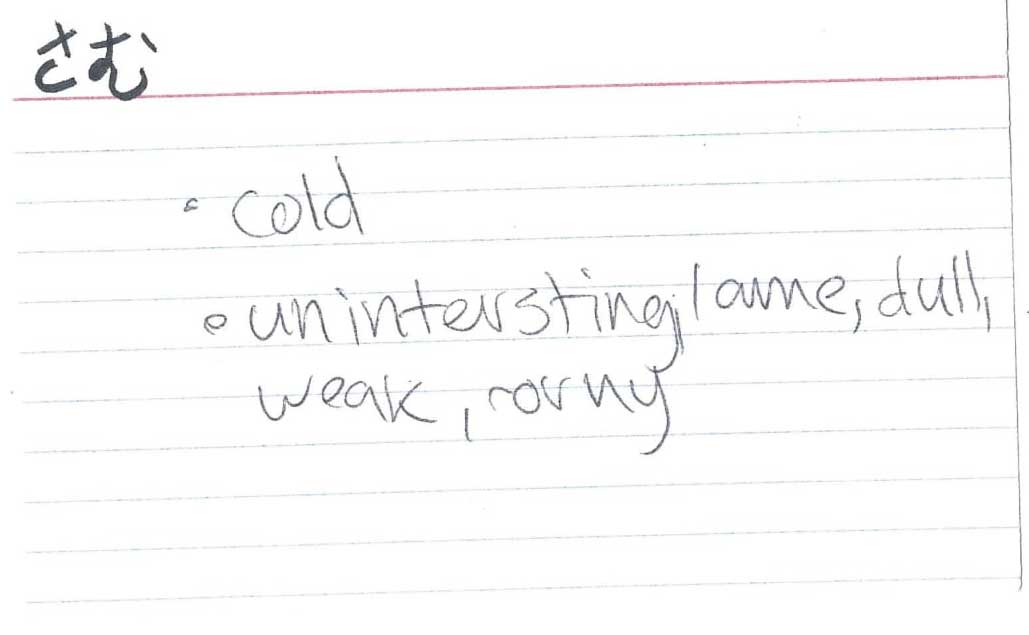 さむ
• cold
• unintersting, lame, dull,
weak, corny